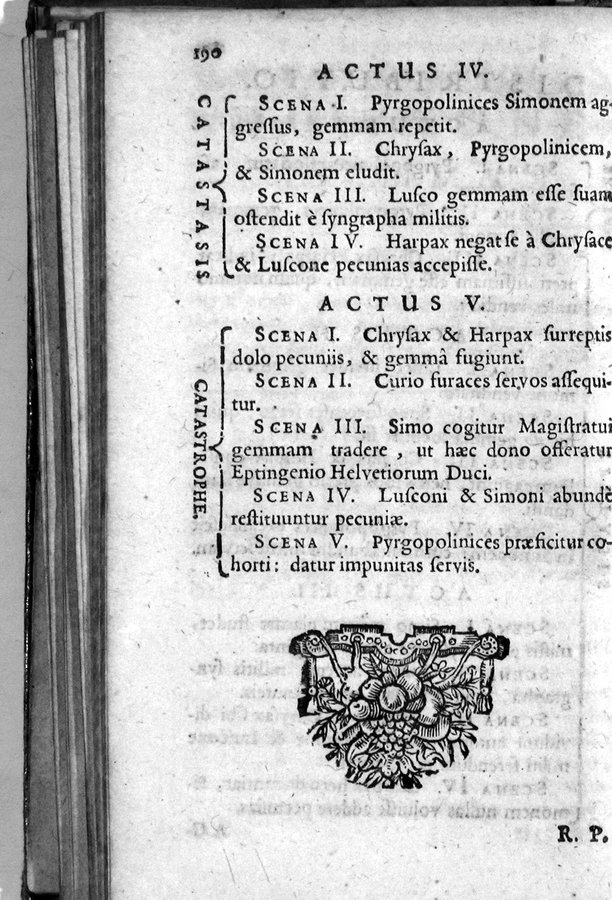 190
ACTUS IV.
CATASTASIS
SCENA I. Pyrgopolinices Simonem ag-
greſſus, gemmam repetit.
SCENA II. Chryſax, Pyrgopolinicem,
& Simonem eludit.
SCENA III. Luſco gemmam eſſe ſuam
oſtendit è ſyngrapha militis.
SCENA IV. Harpax negat ſe à Chryſace
& Luſcone pecunias accepiſſe.
ACTUS V.
CATASTROPHE.
SCENA I. Chryſax & Harpax ſurreptis
dolo pecuniis, & gemmâ fugiunt.
SCENA II. Curio furaces ſervos aſſequi-
tur.
SCENA III. Simo cogitur Magiſtratui
gemmam tradere, ut hæc dono offeratur
Eptingenio Helvetiorum Duci.
SCENA IV. Luſconi & Simoni abundè
reſtituuntur pecuniæ.
SCENA V. Pyrgopolinices præficitur co-
horti: datur impunitas ſervis.
R. P.